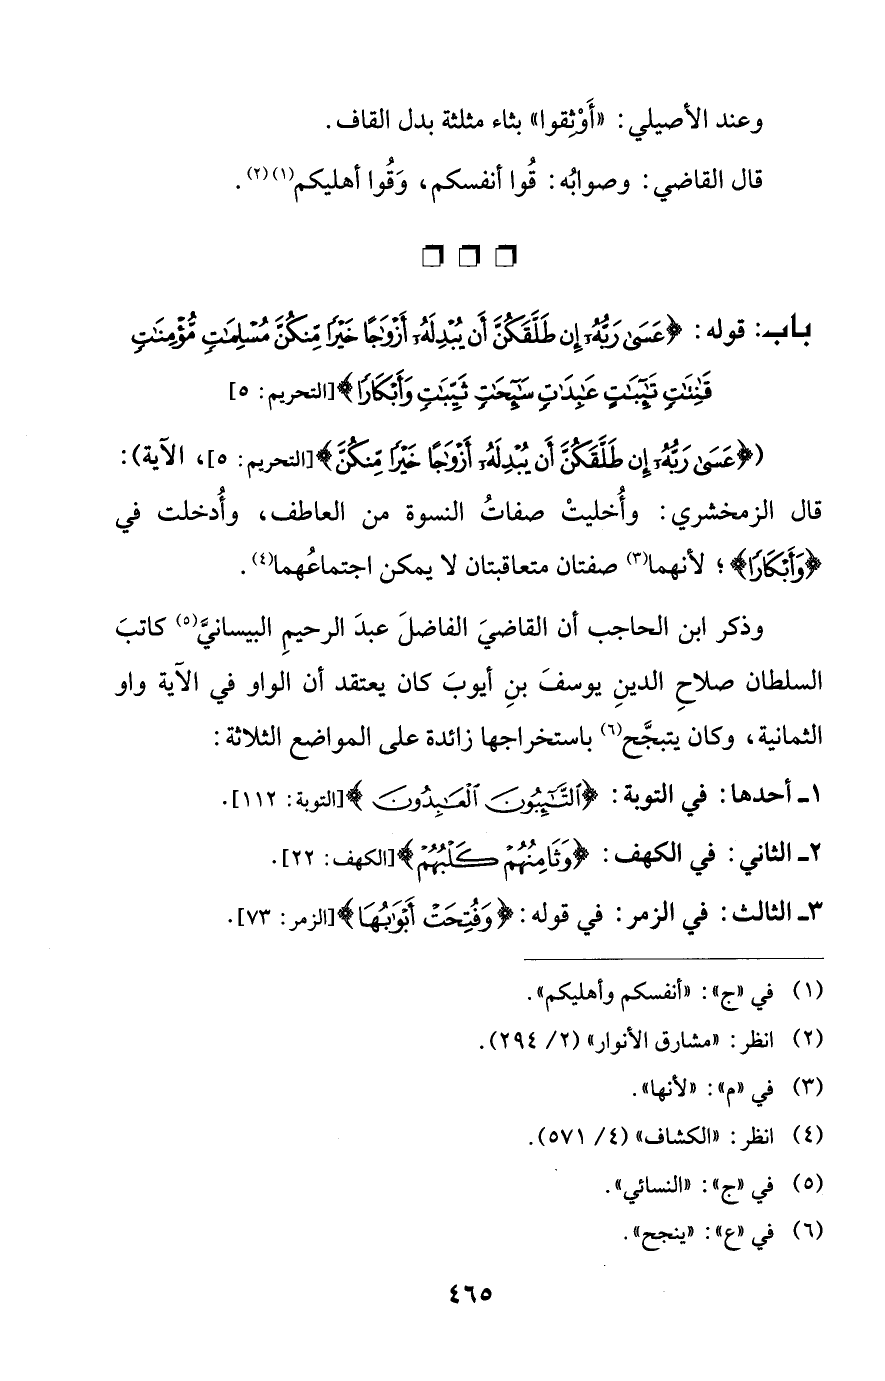 وعند الأصيلي: «أَوْثِقوا» بثاء مثلثة بدل القاف.
قال القاضي: وصوابُه: قُوا أنفسكم، وَقُوا أهليكم(١)(٢).
باب: قوله: ﴿عَسَىٰ رَبُّهُۥٓ إِن طَلَّقَكُنَّ أَن يُبْدِلَهُۥٓ أَزْوَٰجًا خَيْرًا مِّنكُنَّ مُسْلِمَٰتٍ مُّؤْمِنَٰتٍ
قَٰنِتَٰتٍ تَٰٓئِبَٰتٍ عَٰبِدَٰتٍ سَٰٓئِحَٰتٍ ثَيِّبَٰتٍ وَأَبْكَارًا﴾ [التحريم: ٥]
(﴿عَسَىٰ رَبُّهُۥٓ إِن طَلَّقَكُنَّ أَن يُبْدِلَهُۥٓ أَزْوَٰجًا خَيْرًا مِّنكُنَّ﴾ [التحريم: ٥]، الآية):
قال الزمخشري: وأُخليتْ صفاتُ النسوة من العاطف، وأُدخلت في
﴿وَأَبْكَارًا﴾؛ لأنهما(٣) صفتان متعاقبتان لا يمكن اجتماعُهما(٤).
وذكر ابن الحاجب أن القاضيَ الفاضلَ عبدَ الرحيمِ البيسانيَّ(٥) كاتبَ
السلطان صلاحِ الدينِ يوسفَ بنِ أيوبَ كان يعتقد أن الواو في الآية واو
الثمانية، وكان يتبجَّح(٦) باستخراجها زائدة على المواضع الثلاثة:
١ـ أحدها: في التوبة: ﴿ٱلتَّٰٓئِبُونَ ٱلْعَٰبِدُونَ﴾ [التوبة: ١١٢].
٢ـ الثاني: في الكهف: ﴿وَثَامِنُهُمْ كَلْبُهُمْ﴾ [الكهف: ٢٢].
٣ـ الثالث: في الزمر: في قوله: ﴿وَفُتِحَتْ أَبْوَٰبُهَا﴾ [الزمر: ٧٣].
(١) في «ج»: «أنفسكم وأهليكم».
(٢) انظر: «مشارق الأنوار» (٢/ ٢٩٤).
(٣) في «م»: «لأنها».
(٤) انظر: «الكشاف» (٤/ ٥٧١).
(٥) في «ج»: «النسائي».
(٦) في «ع»: «ينجح».
٤٦٥